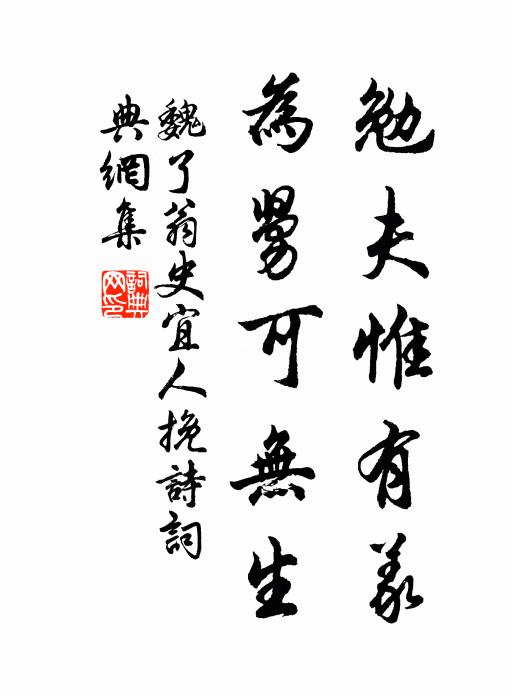 勉夫惟有義
為舅可無生
魏了翁史宜人挽詩詞
典網集
詞典
网印